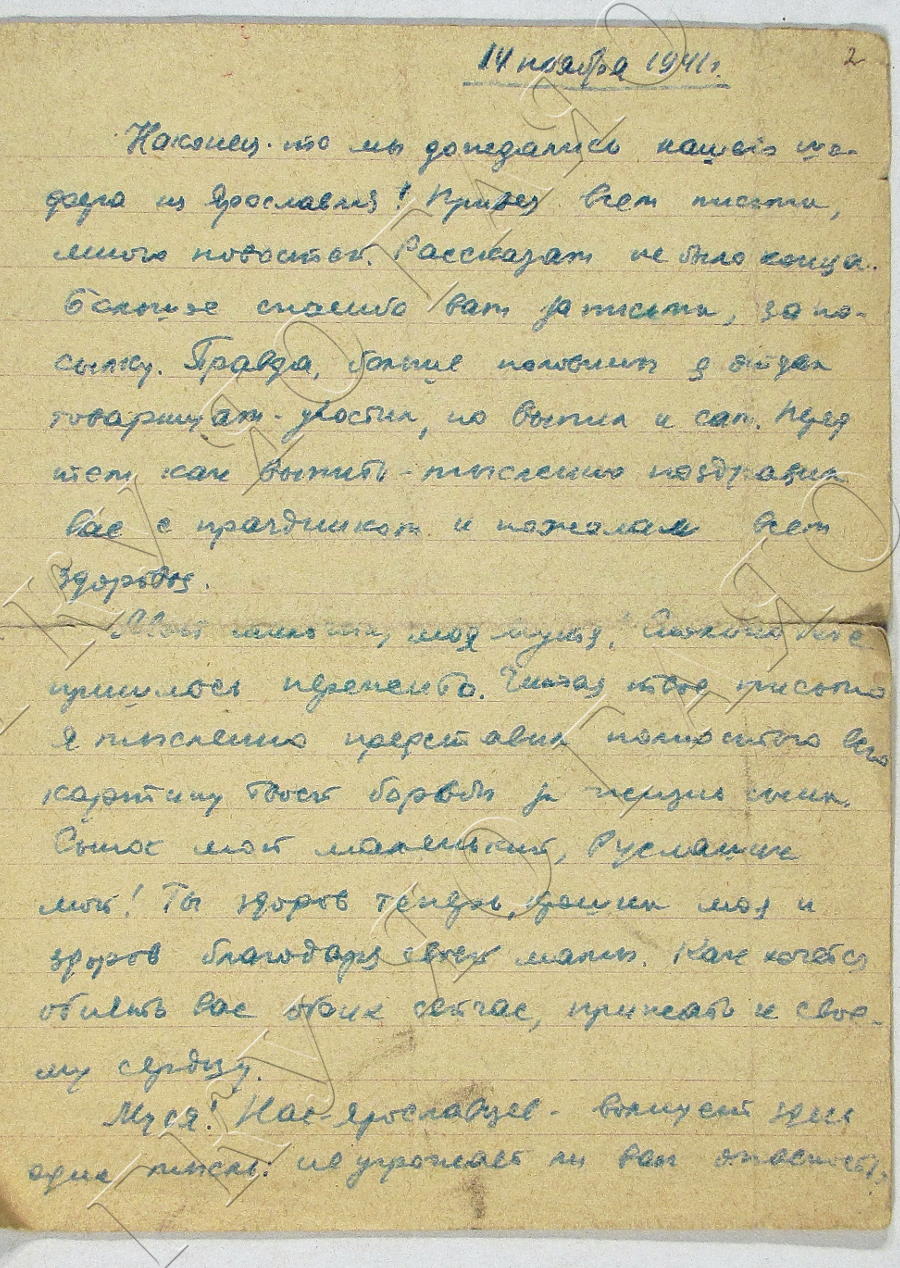 2
14 ноября 1941 г.
Наконец-то мы дождались нашего шо-
фера из Ярославля! Привез всем письма,
много новостей. Рассказам не было конца.
Большое спасибо вам за письма, за по-
сылку. Правда, больше половины я отдал
товарищам - угостил, но выпил и сам. Перед
тем как выпить - мысленно поздравил
вас с праздником и пожелал всем
здоровья.
милая, моя Муся! Сколько тебе
пришлось пережить. Читая твое письмо
я мысленно представил полностью всю
картину твоей борьбы за жизнь сына.
Сынок мой маленький, Русланчик
мой! Ты здоров теперь, моя и
здоров благодаря своей мамы. Как хочется
обнять вас обоих сейчас, прижать к свое-
му сердцу.
Муся! Нас - ярославцев - волнует здесь
одна мысль: не угрожает ли вам опасность,
ГКУ ЯО ГАЯО
ГКУ ЯО ГАЯО